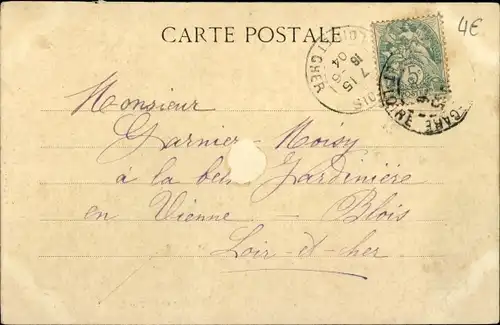 CARTE POSTALE
4€
LOIR-ET-CHER
7 15
16
04
BLOIS
5
GARE
Monsieur
Garnier - Noisy
à la belle Jardinière
en Vienne - Blois
Loir-et-cher